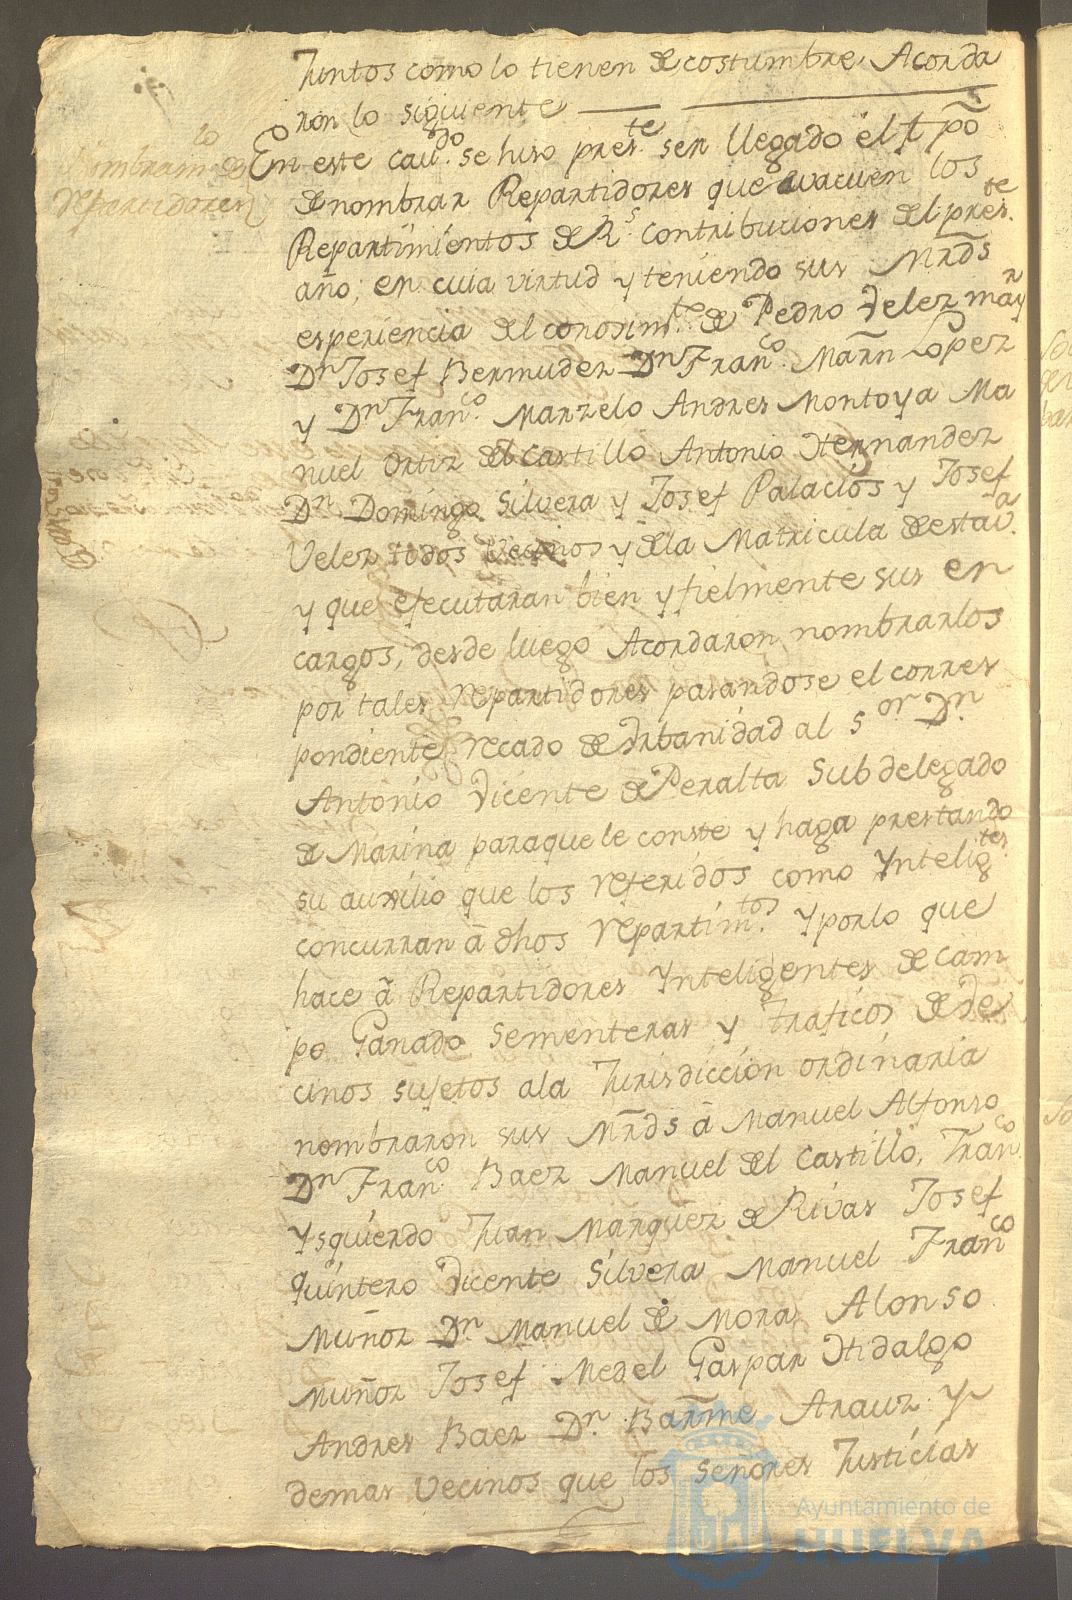 Juntos como lo tienen de costumbre Acorda
ron lo siguiente
Nombram.to de
Repartidores
En este cav.do se hiso pres.te ser llegado el tpõ
de nombrar Repartidores que evacuen los
Repartimientos de R.s contribuciones del pres.te
año; en cuia virtud y teniendo sus Mrds
esperiencia del conosim.to de Pedro Velez mayr
Dn Josef Bermudez Dn Fran.co Marn Lopez
y Dn Fran.co Marzelo Andres Montoya Ma
nuel Ortiz del Castillo Antonio Hernandez
Dn Domingo Silvera y Josef Palacios y Josef
Velez todos Vecinos y de la Matricula de esta v.a
y que efecutaran bien y fielmente sus en
cargos, desde luego Acordaron nombrarlos
por tales repartidores pasandose el corres
pondiente recado de Urbanidad al S.or Dn
Antonio Vicente de Peralta Subdelegado
de Marina paraque le conste y haga prestando
su auxilio que los referidos como Yntelig.tes
concurran â dhos repartim.tos y por lo que
hace â Repartidores Ynteligentes de cam
po Ganado Sementeras y traficos de Ve
cinos sujetos ala Jurisdiccion ordinaria
nombraron sus Mrds â Manuel Alfonso
Dn Fran.co Baez Manuel del Castillo, Fran.co
Ysquierdo Juan Marquez de Rivas Josef
Quintero Vicente Silvera Manuel Fran.co
Muñoz Dn Manuel de Mora Alonso
Muñoz Josef Medel Gaspar Hidalgo
Andres Baez Dn Barme Arauz y
demas Vecinos que los Señores Justicias
Ayuntamiento de
HUELVA